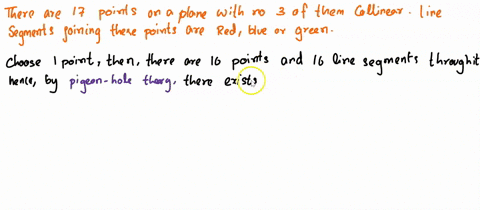 There are 17 points on a plane with no 3 of them Collinear. Line
Segments joining these points are Red, blue or green.
Choose 1 point, then, there are 16 points and 16 line segments through it
hence, by pigeon-hole theorg, there exists